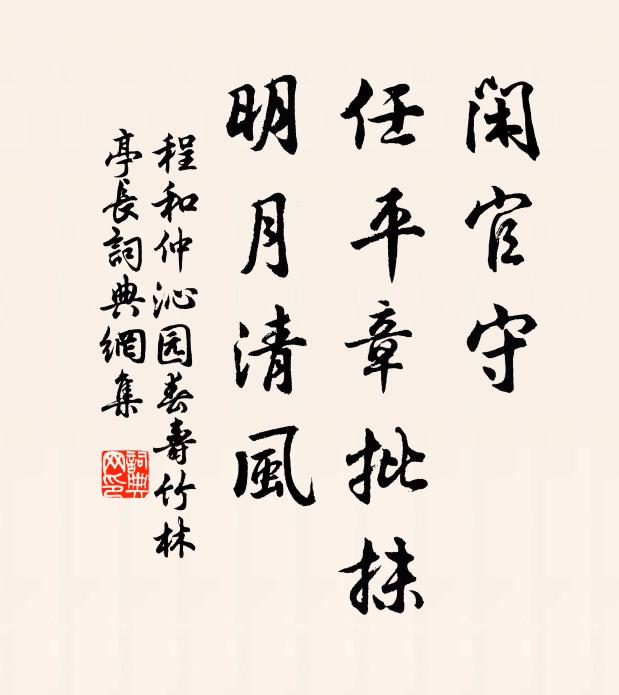 闲官守
任平章批抹
明月清風
程和仲沁园春壽竹林
亭長詞典網集
詞典网印